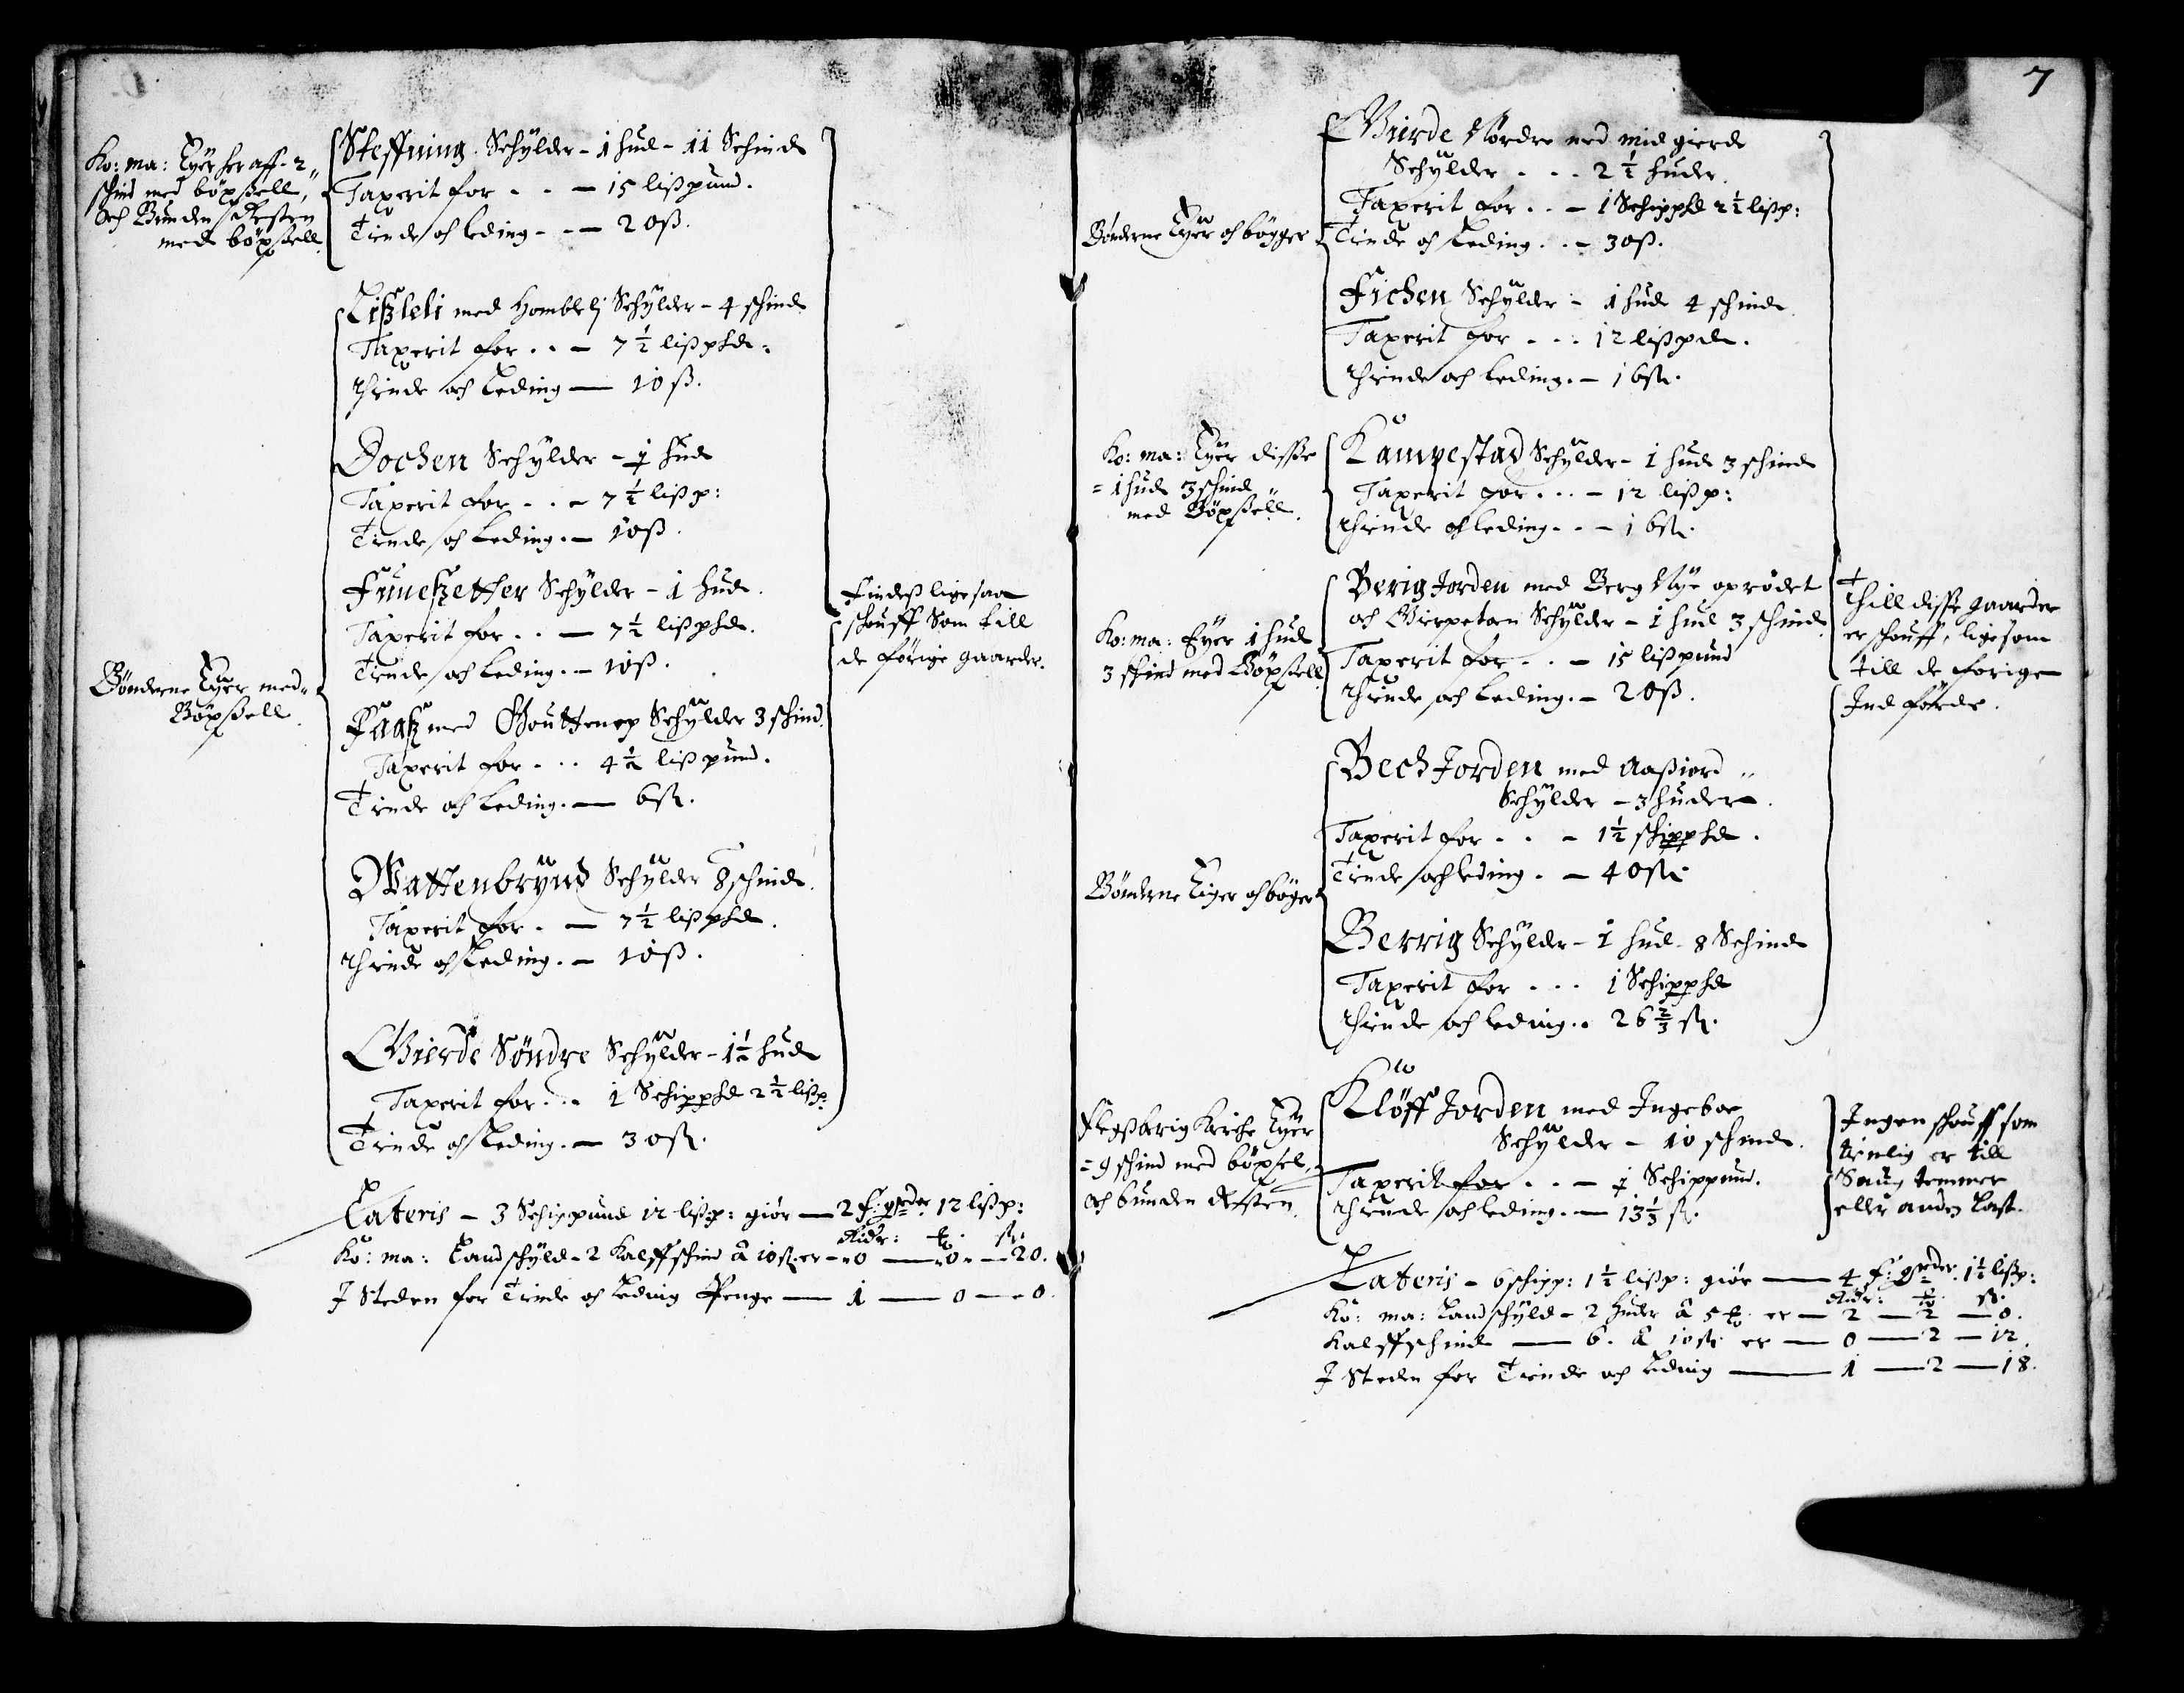 Ko: ma: Eyer her aff - 2
schind med böxsell,
och Bunden Resten
med böxsell.
Steffning Schÿlder - 1 hud - 11 Schind
Taxerit for - - - 15 lißpund.
Tiende och leding - - - 20 ß.
Lißleli med Homblelj Schÿlder - 4 schind
Taxerit for . . - 7 ½ lißphd.
Thiende och Leding - 10 ß.
Dochen Schÿlder - 1 hud
Taxerit for - . - 7 ½ lißp:
Tiende och Leding. - 10 ß.
Schÿlder - 1 hud.
Taxerit for . . - 7 ½ lißphd.
Tiende och Leding. - 10 ß.
Bönderne Eyer med
Böxsell.
Faatz med Schÿlder 3 schind.
Taxerit for - . . 4 ½ lißpund.
Tiende och Leding. - 6 ß.
Wattenbrÿnd Schÿlder 8 schind.
Taxerit for . - 7 ½ lißphd.
Thiende och Leding. - 10 ß.
Gierde Söndre Schÿlder - 1 ½ hud
Taxerit for . . - 1 Schipphd 2 ½ lißp.
Tiende och Leding. - 30 ß.
Findeß lige saa
schouff Som till
de förige gaarder.
Lateris - 3 Schippund 12 lißp: giör - 2 f: gorder 12 lißp:
Ridr: ß.
Ko: ma: Landschÿld - 2 Kalffschind á 10 ß er - 0 - 0 - 20.
J Steden for Tiende och Leding Penge - 1 - 0 - 0.
7
Gierde Nordre med midgierde
Schÿlder . . . 2 ½ huder.
Taxerit for . . - 1 Schipphd 2 ½ lißp:
Tiende och Leding . . - 30 ß.
Bönderne Eyer och bögger
Fichen Schÿlder - 1 hud 4 schind.
Taxerit for - . . 12 lißpd.
Thiende och Leding. - 16 ß.
Ko: ma: Eyer disse
= 1 hud 3 schind
med Böxsell.
Kampestad Schÿlder - 1 hud 3 schind
Taxerit for . . . - 12 lißp:
Thiende och leding - . - 16 ß.
Ko: ma: Eyer 1 hud
3 schind med Böxsell
Berig Jorden med Berg Nÿe oprödet
och Schÿlder - 1 hud 3 schind
Taxerit for . . . - 15 lißpund
Thiende och Leding. - 20 ß.
Thill disse gaarder
er schouff, ligesom
till de forige
Ind förde.
Bech Jorden med Aaßiord
Schÿlder - 3 huder.
Taxerit for . . - 1 ½ schipphd.
Tiende och leding. - 40 ß.
Bönderne Eiger och böger
Berrig Schÿlder - 1 hud - 8 Schind
Taxerit for . . . 1 Schipphd
Thiende och Leding . . 26 ⅔ ß.
Kirche Eyer
= 9 schind med böxsel,
och bunden Resten.
Klöff Jorden med Ingeboe
Schÿlder - 10 schind.
Taxerit for . . - 1 Schippund.
Thiende och leding. - 13 ⅓ ß.
Ingen schouff som
tienlig er till
Saug temmer
eller anden Last.
Lateris - 6 schipp: 1 ½ lißp: giör - 4 f: gorder 1 ½ lißp:
Ridr: ß.
Ko: ma: Landschÿld - 2 Huder á 5 er - 2 - 2 - 0.
Kalffschind - 6. á 10 ß er - 0 - 2 - 12.
J Steden for Tiende och Leding - 1 - 2 - 18.